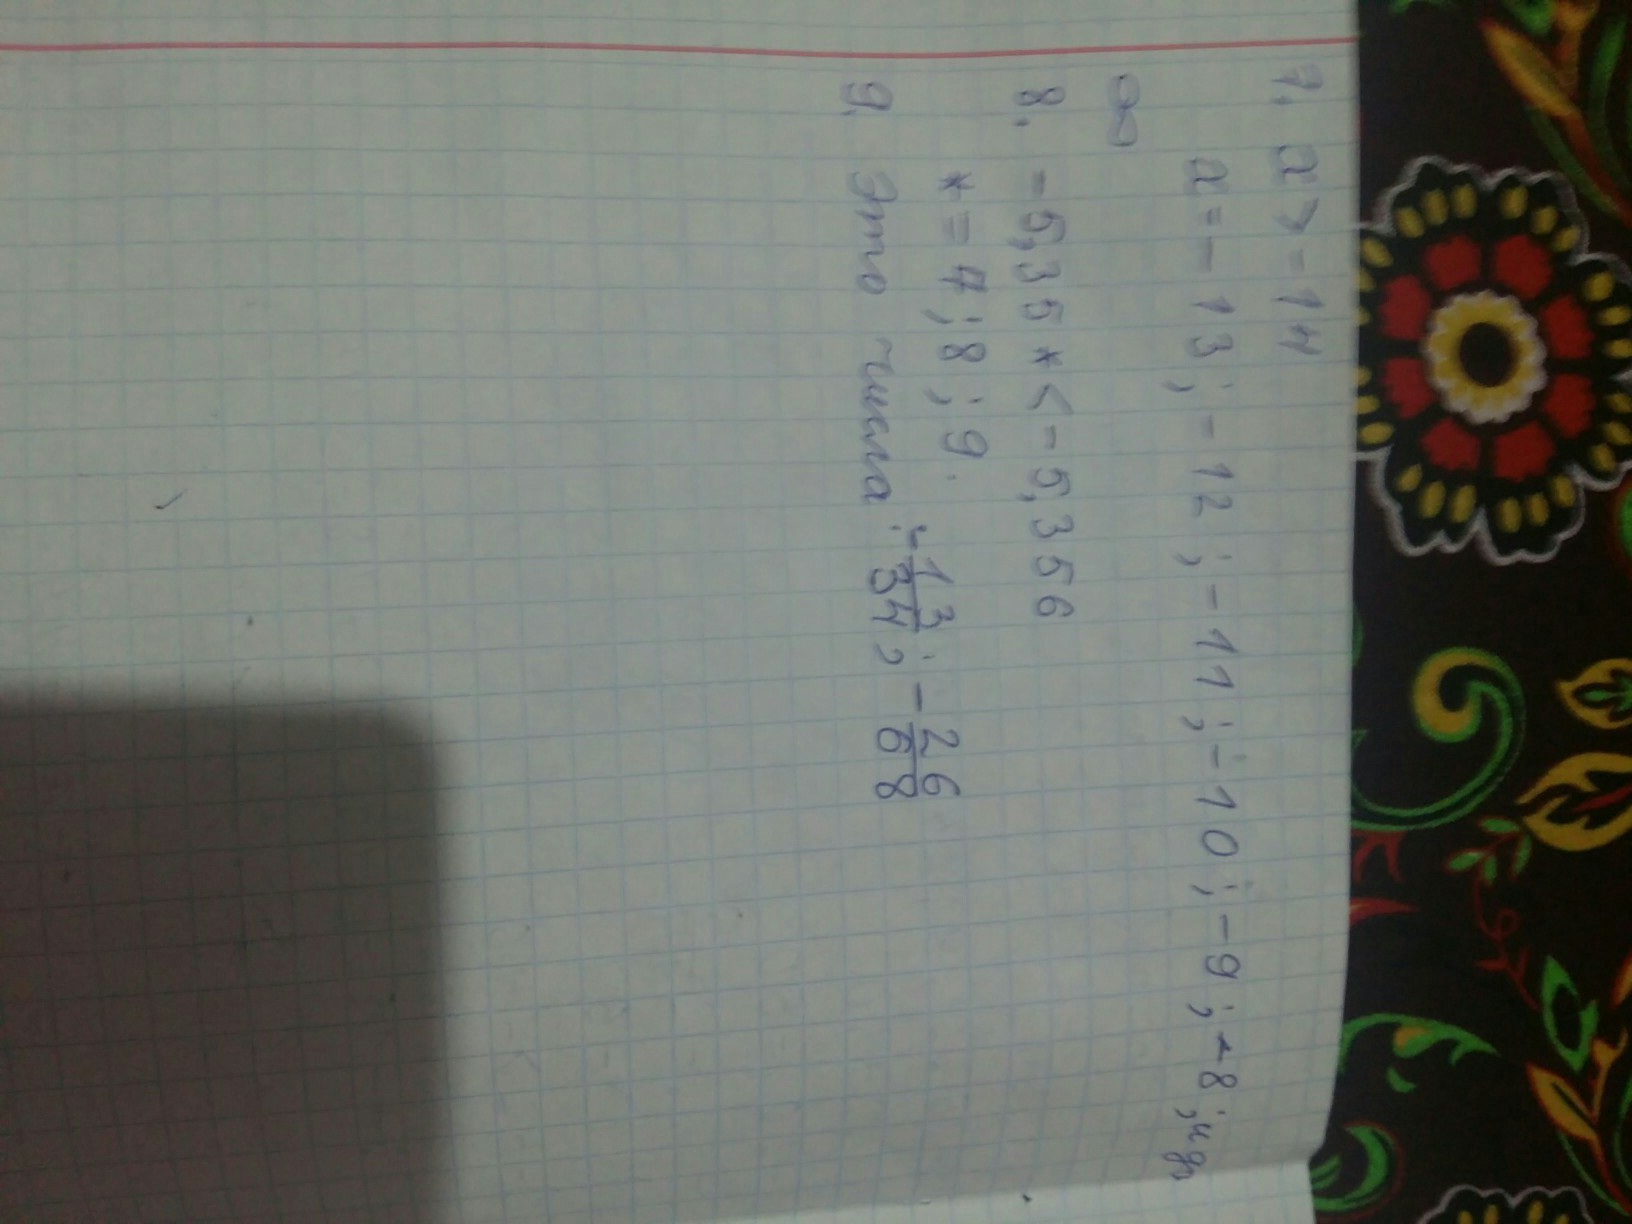 7. x > -14
x = -13; -12; -11; -10; -9; -8; и др
8. -5,35* < -5,356
* = 7; 8; 9.
9. Это числа: -13/34; -26/68